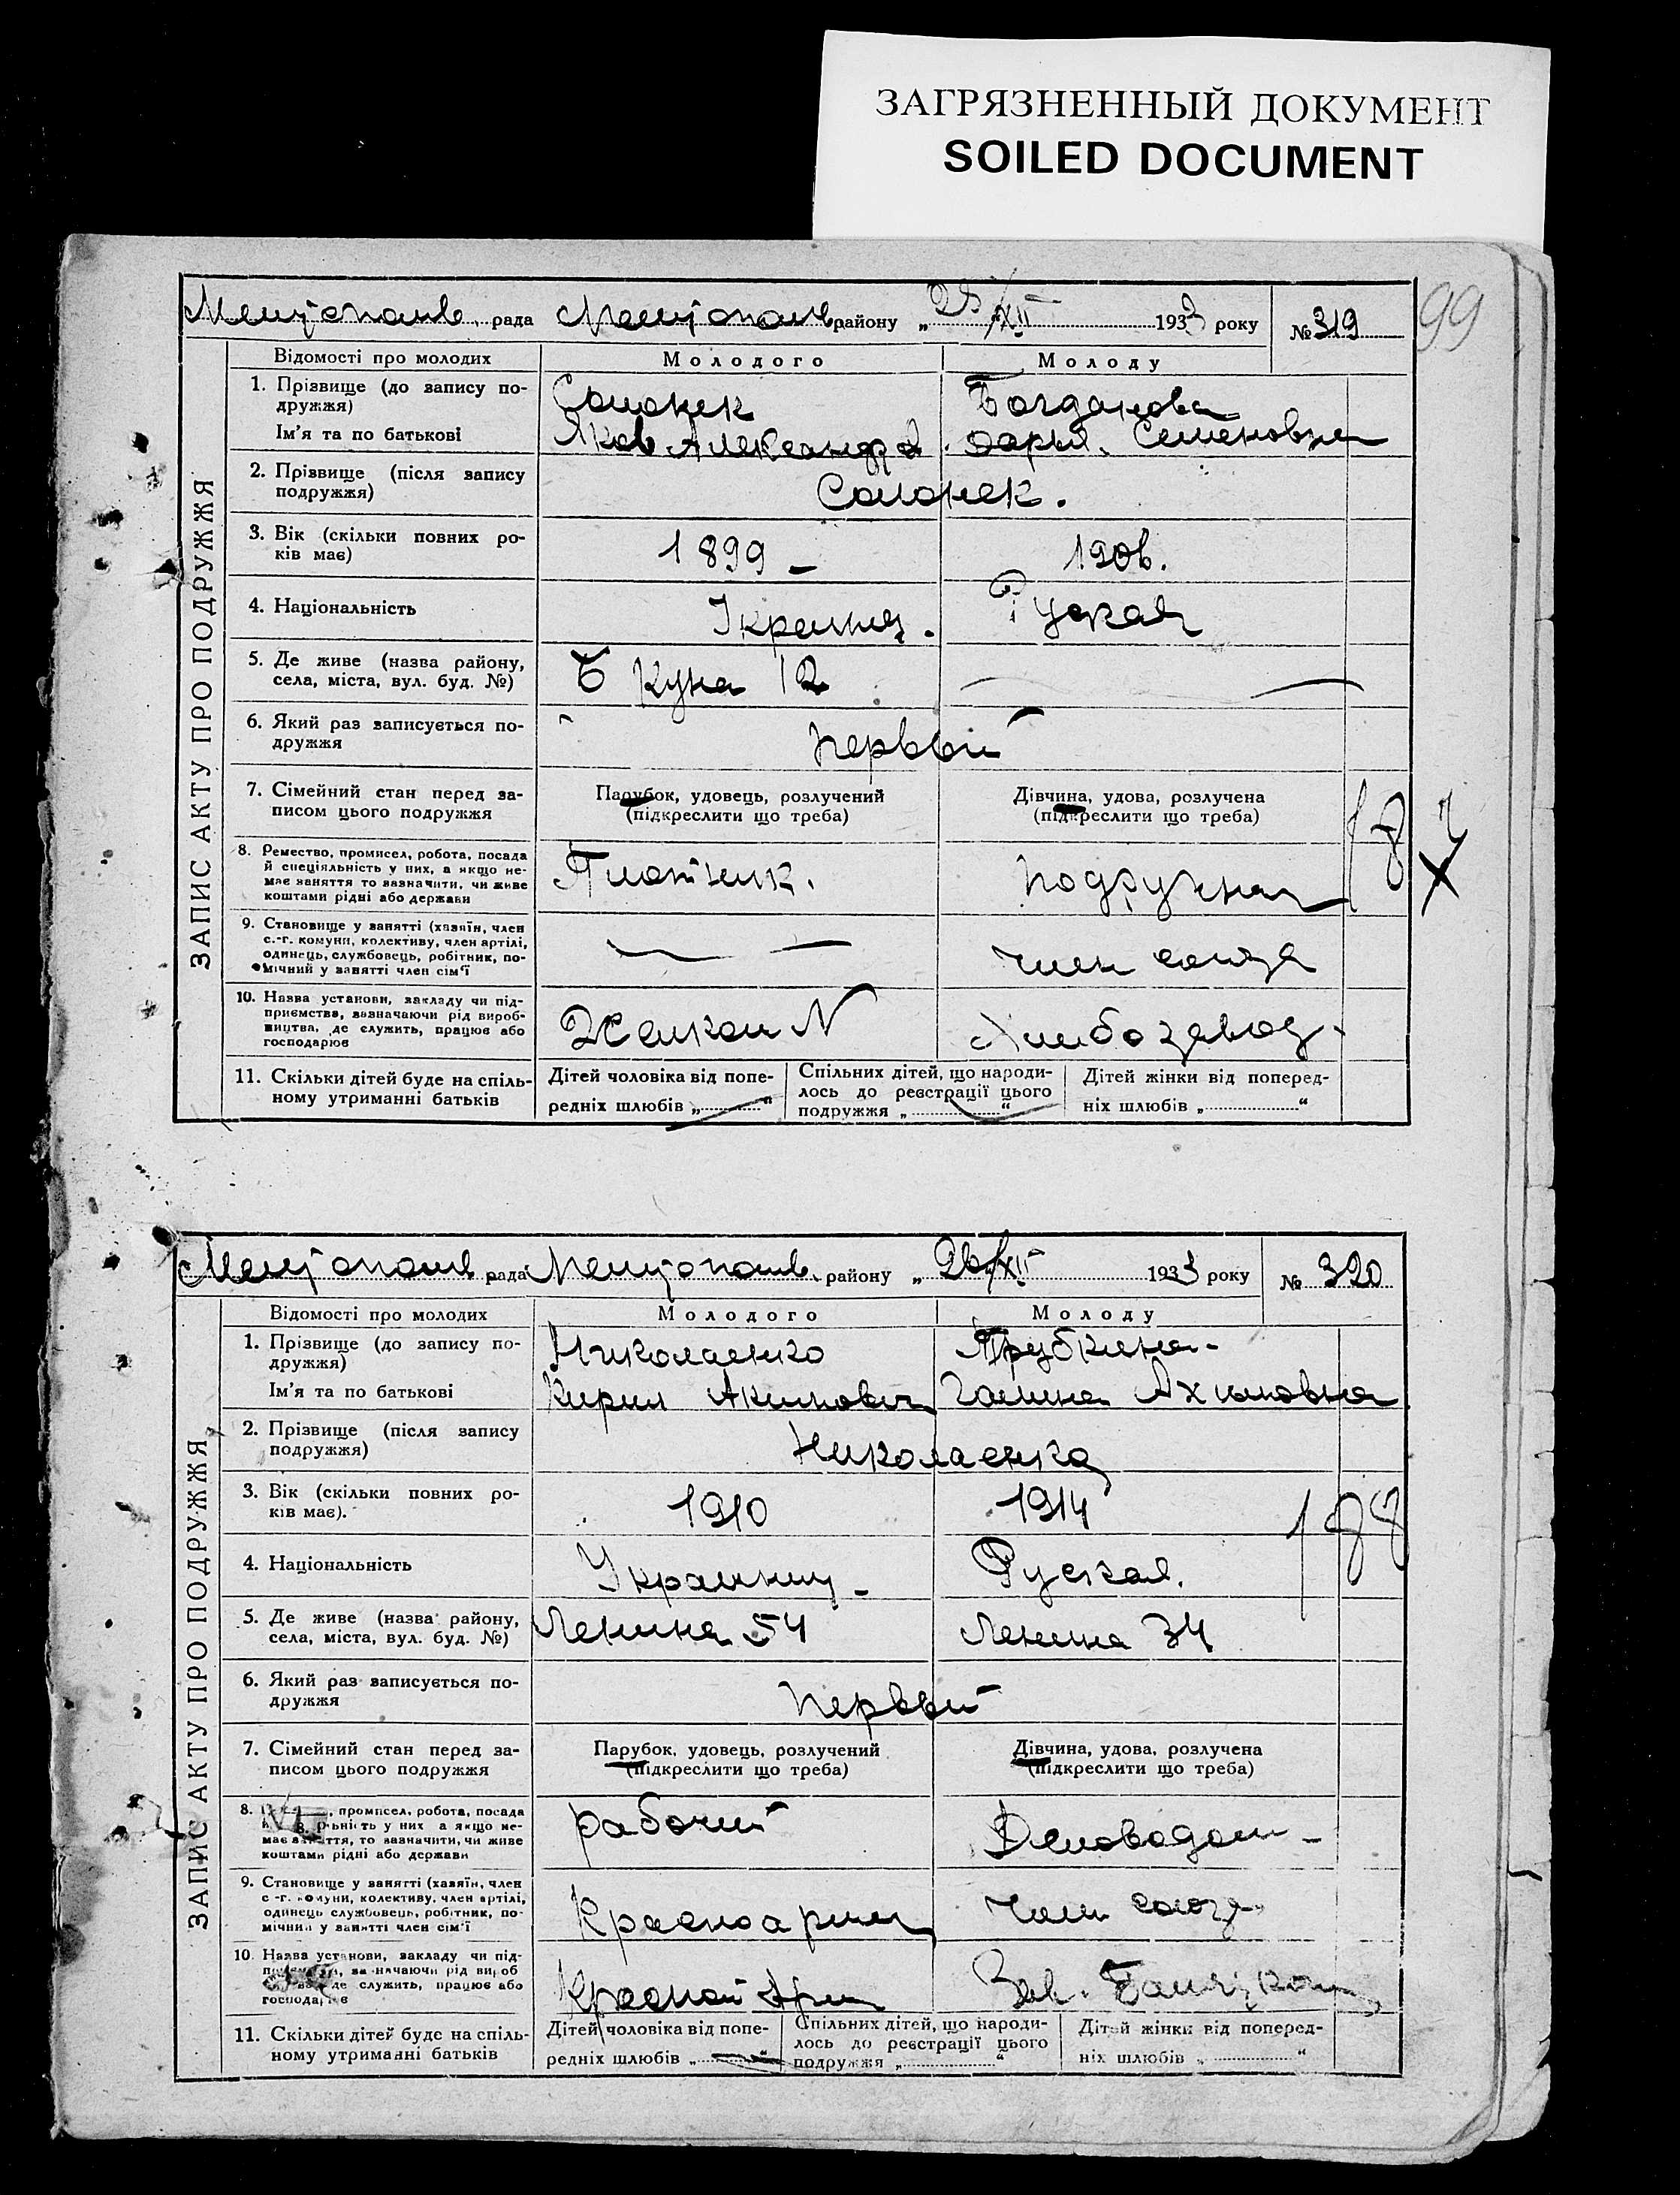 ЗАГРЯЗНЕННЫЙ ДОКУМЕНТ
SOILED DOCUMENT
99
рада району „ 25/XII 1933 року № 319
ЗАПИС АКТУ ПРО ПОДРУЖЖЯ
Відомості про молодих Молодого Молоду
1. Прізвище (до запису по-
дружжя)
Богданова
Ім'я та по батькові
Яков Дарья Семеновна
2. Прізвище (після запису
подружжя)
3. Вік (скільки повних ро-
ків має)
1899 – 1906.
4. Національність
Руская
5. Де живе (назва району,
села, міста, вул. буд. №)
Б Куна 12
6. Який раз записується по-
дружжя
первый
7. Сімейний стан перед за-
писом цього подружжя
Парубок, удовець, розлучений
(підкреслити що треба)
Дівчина, удова, розлучена
(підкреслити що треба)
8. Ремество, промисел, робота, посада
й спеціяльність у них, а якщо не-
має заняття то зазначити, чи живе
коштами рідні або держави
Плотник. подручная
9. Становище у занятті (хазяїн, член
с.-г. комуни, колективу, член артілі,
одинець, службовець, робітник, по-
мічний у занятті член сім'ї
член союза
10. Назва установи, закладу чи під-
приємства, зазначаючи рід вироб-
ництва, де служить, працює або
господарює
11. Скільки дітей буде на спіль-
ному утриманні батьків
Дітей чоловіка від попе-
редніх шлюбів „ “
Спільних дітей, що народи-
лось до реєстрації цього
подружжя „ “
Дітей жінки від поперед-
ніх шлюбів „ “
рада району „ 26/XII 1933 року № 320
ЗАПИС АКТУ ПРО ПОДРУЖЖЯ
Відомості про молодих Молодого Молоду
1. Прізвище (до запису по-
дружжя)
Николаенко
Ім'я та по батькові
Кирил Акимович Галина
2. Прізвище (після запису
подружжя)
Николаенко
3. Вік (скільки повних ро-
ків має).
1910 1914
4. Національність
Руская.
5. Де живе (назва району,
села, міста, вул. буд. №)
Ленина 54 Ленина 34
6. Який раз записується по-
дружжя
первый
7. Сімейний стан перед за-
писом цього подружжя
Парубок, удовець, розлучений
(підкреслити що треба)
Дівчина, удова, розлучена
(підкреслити що треба)
8. промисел, робота, посада
у них а якщо не-
має заняття, то зазначити, чи живе
коштами рідні або держави
рабочий
9. Становище у занятті (хазяїн, член
с-г. комуни, колективу, член артілі,
одинець службовець, робітник, по-
мічний у занятті член сім'ї
член союза
10. Назва установи, закладу чи під-
зазначаючи рід вироб
де служить, працює або
господарює
Красной
11. Скільки дітей буде на спіль-
ному утриманні батьків
Дітей чоловіка від попе-
редніх шлюбів „ “
Спільних дітей, що народи-
лось до реєстрації цього
подружжя „ “
Дітей жінки від поперед-
ніх шлюбів „ “